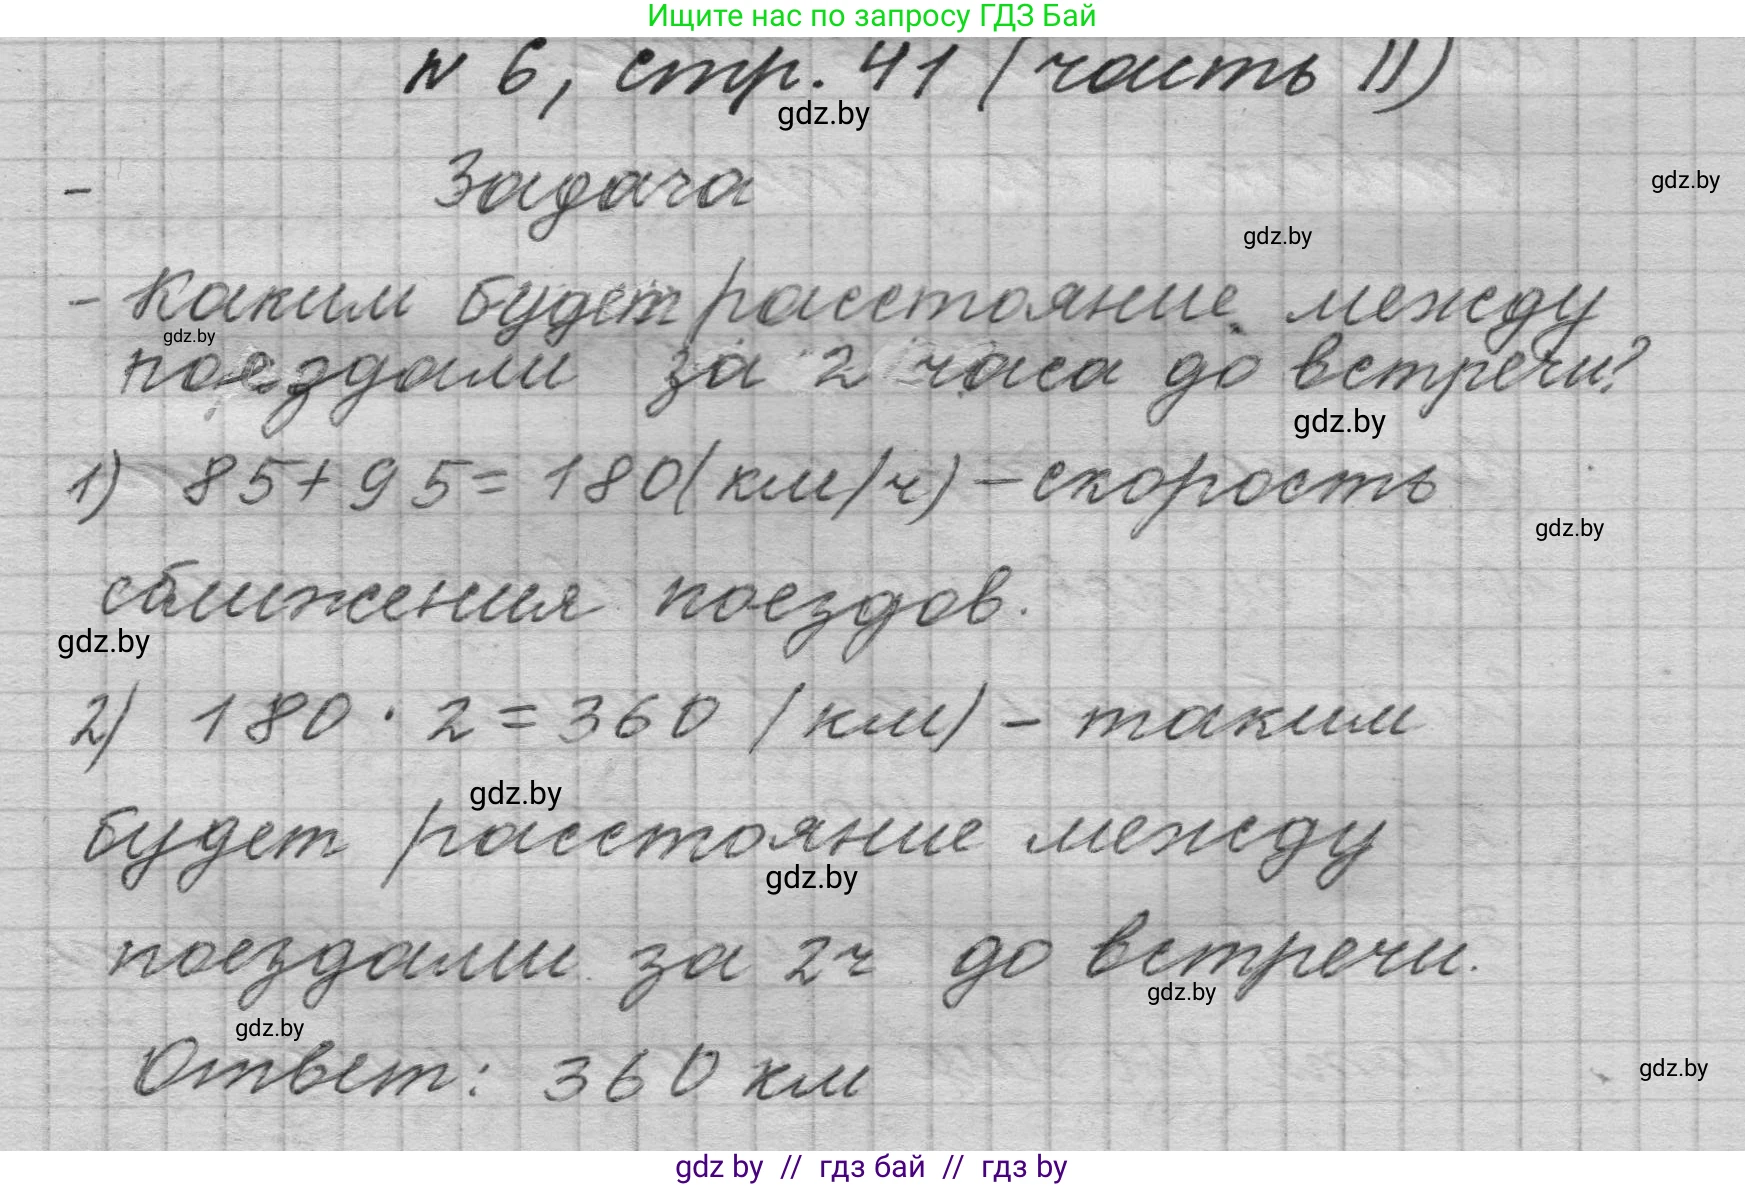 Ищите нас по запросу ГДЗ Бай
№ 6, стр. 41 (часть II)
gdz.by
Задача
gdz.by
gdz.by
- Каким будет расстояние между
gdz.by
поездами за 2 часа до встречи?
gdz.by
1) 85+95=180(км/ч) - скорость
gdz.by
сближения поездов.
gdz.by
2) 180·2=360 (км) - таким
gdz.by
будет расстояние между
gdz.by
поездами за 2ч до встречи.
gdz.by
gdz.by
Ответ: 360 км
gdz.by
gdz by // гдз бай // гдз by